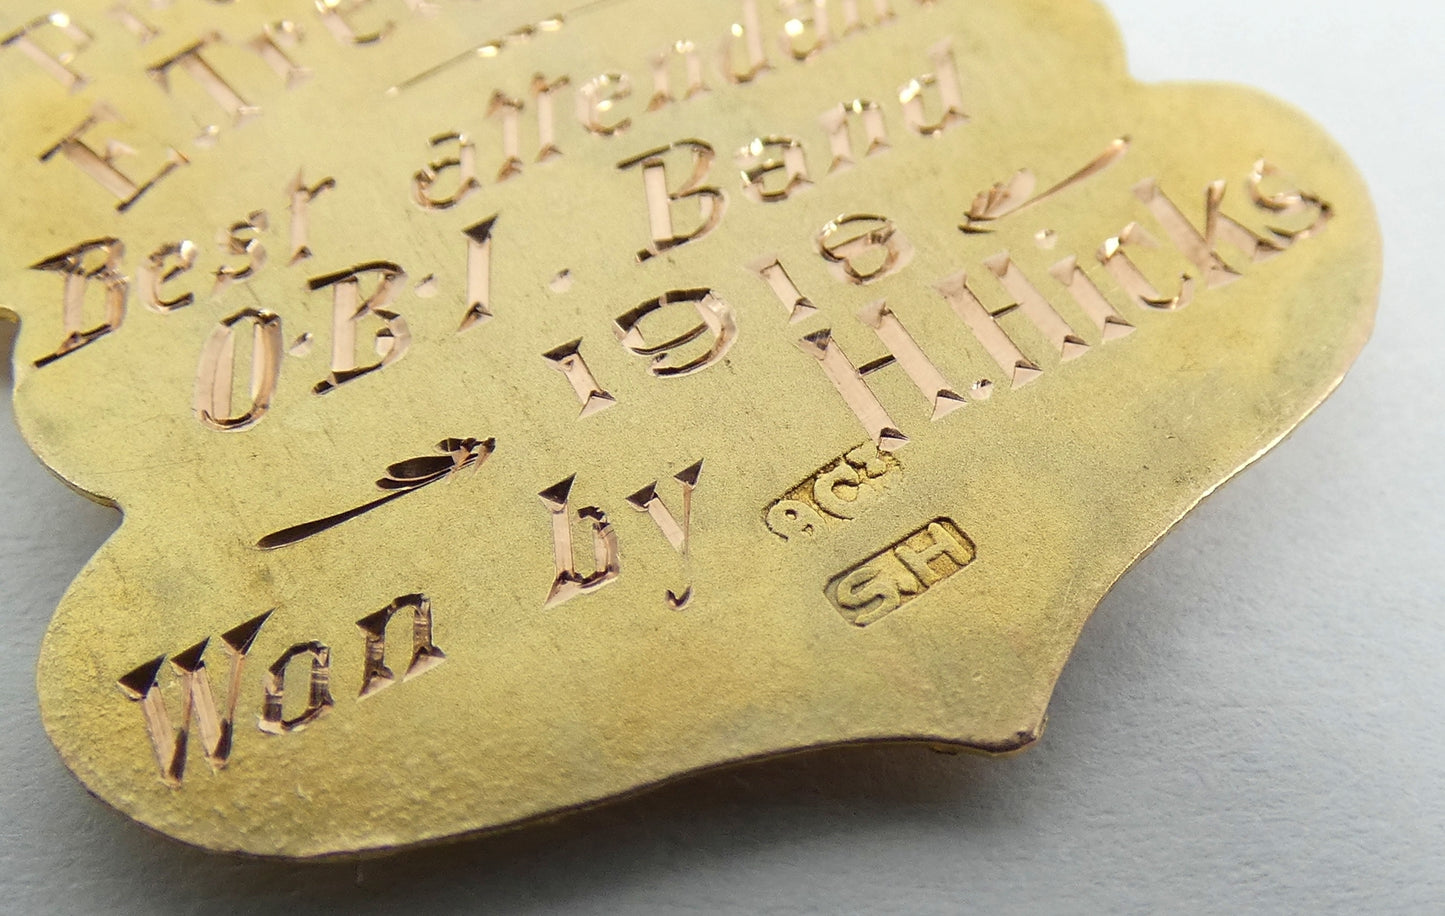 E. Tre
Best attendan
O.B.I. Band
1918
Won by H. Hicks
S.H